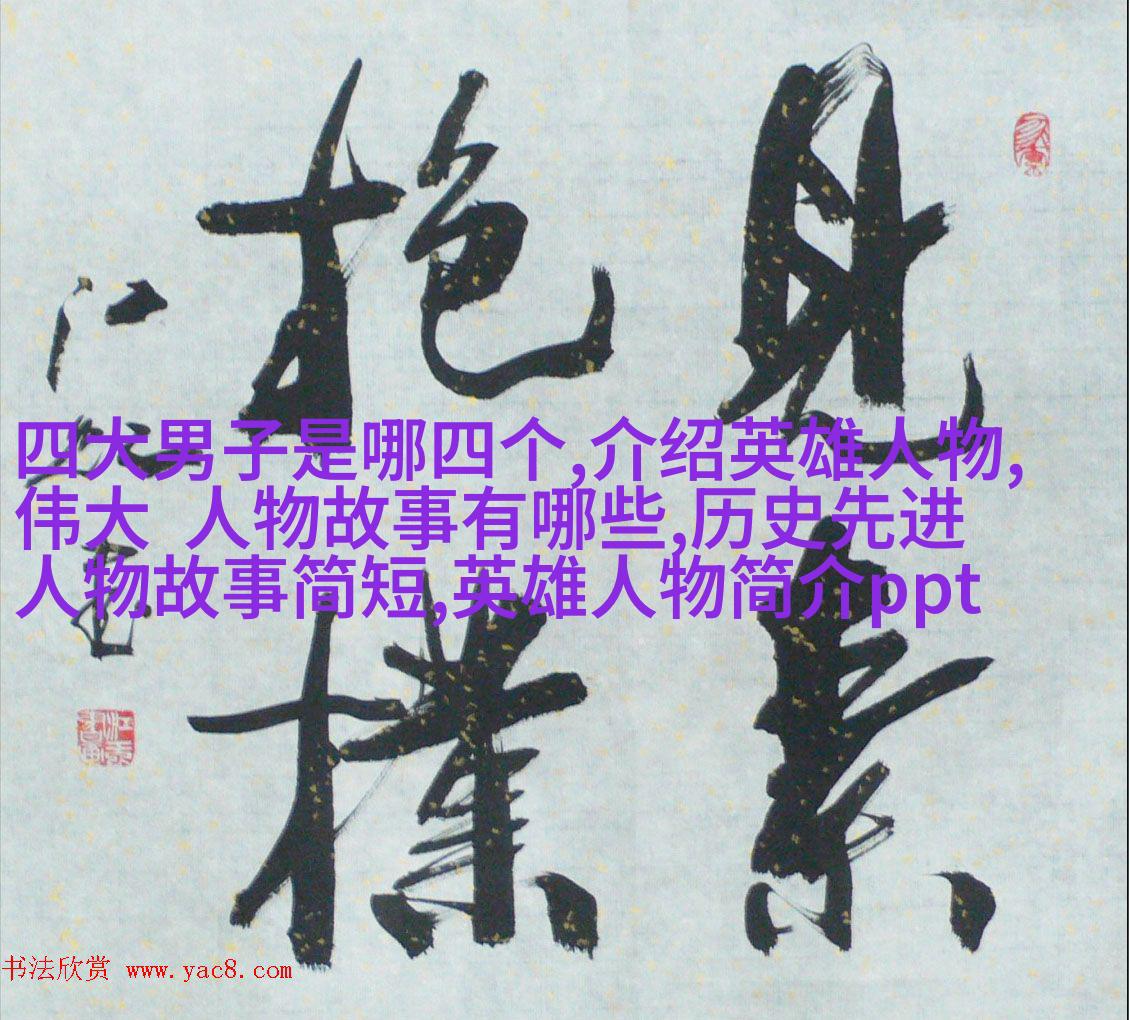 見素
抱樸
四大男子是哪四个,介绍英雄人物,
伟大 人物故事有哪些,历史先进
人物故事简短,英雄人物简介ppt
书法欣赏 www.yac8.com